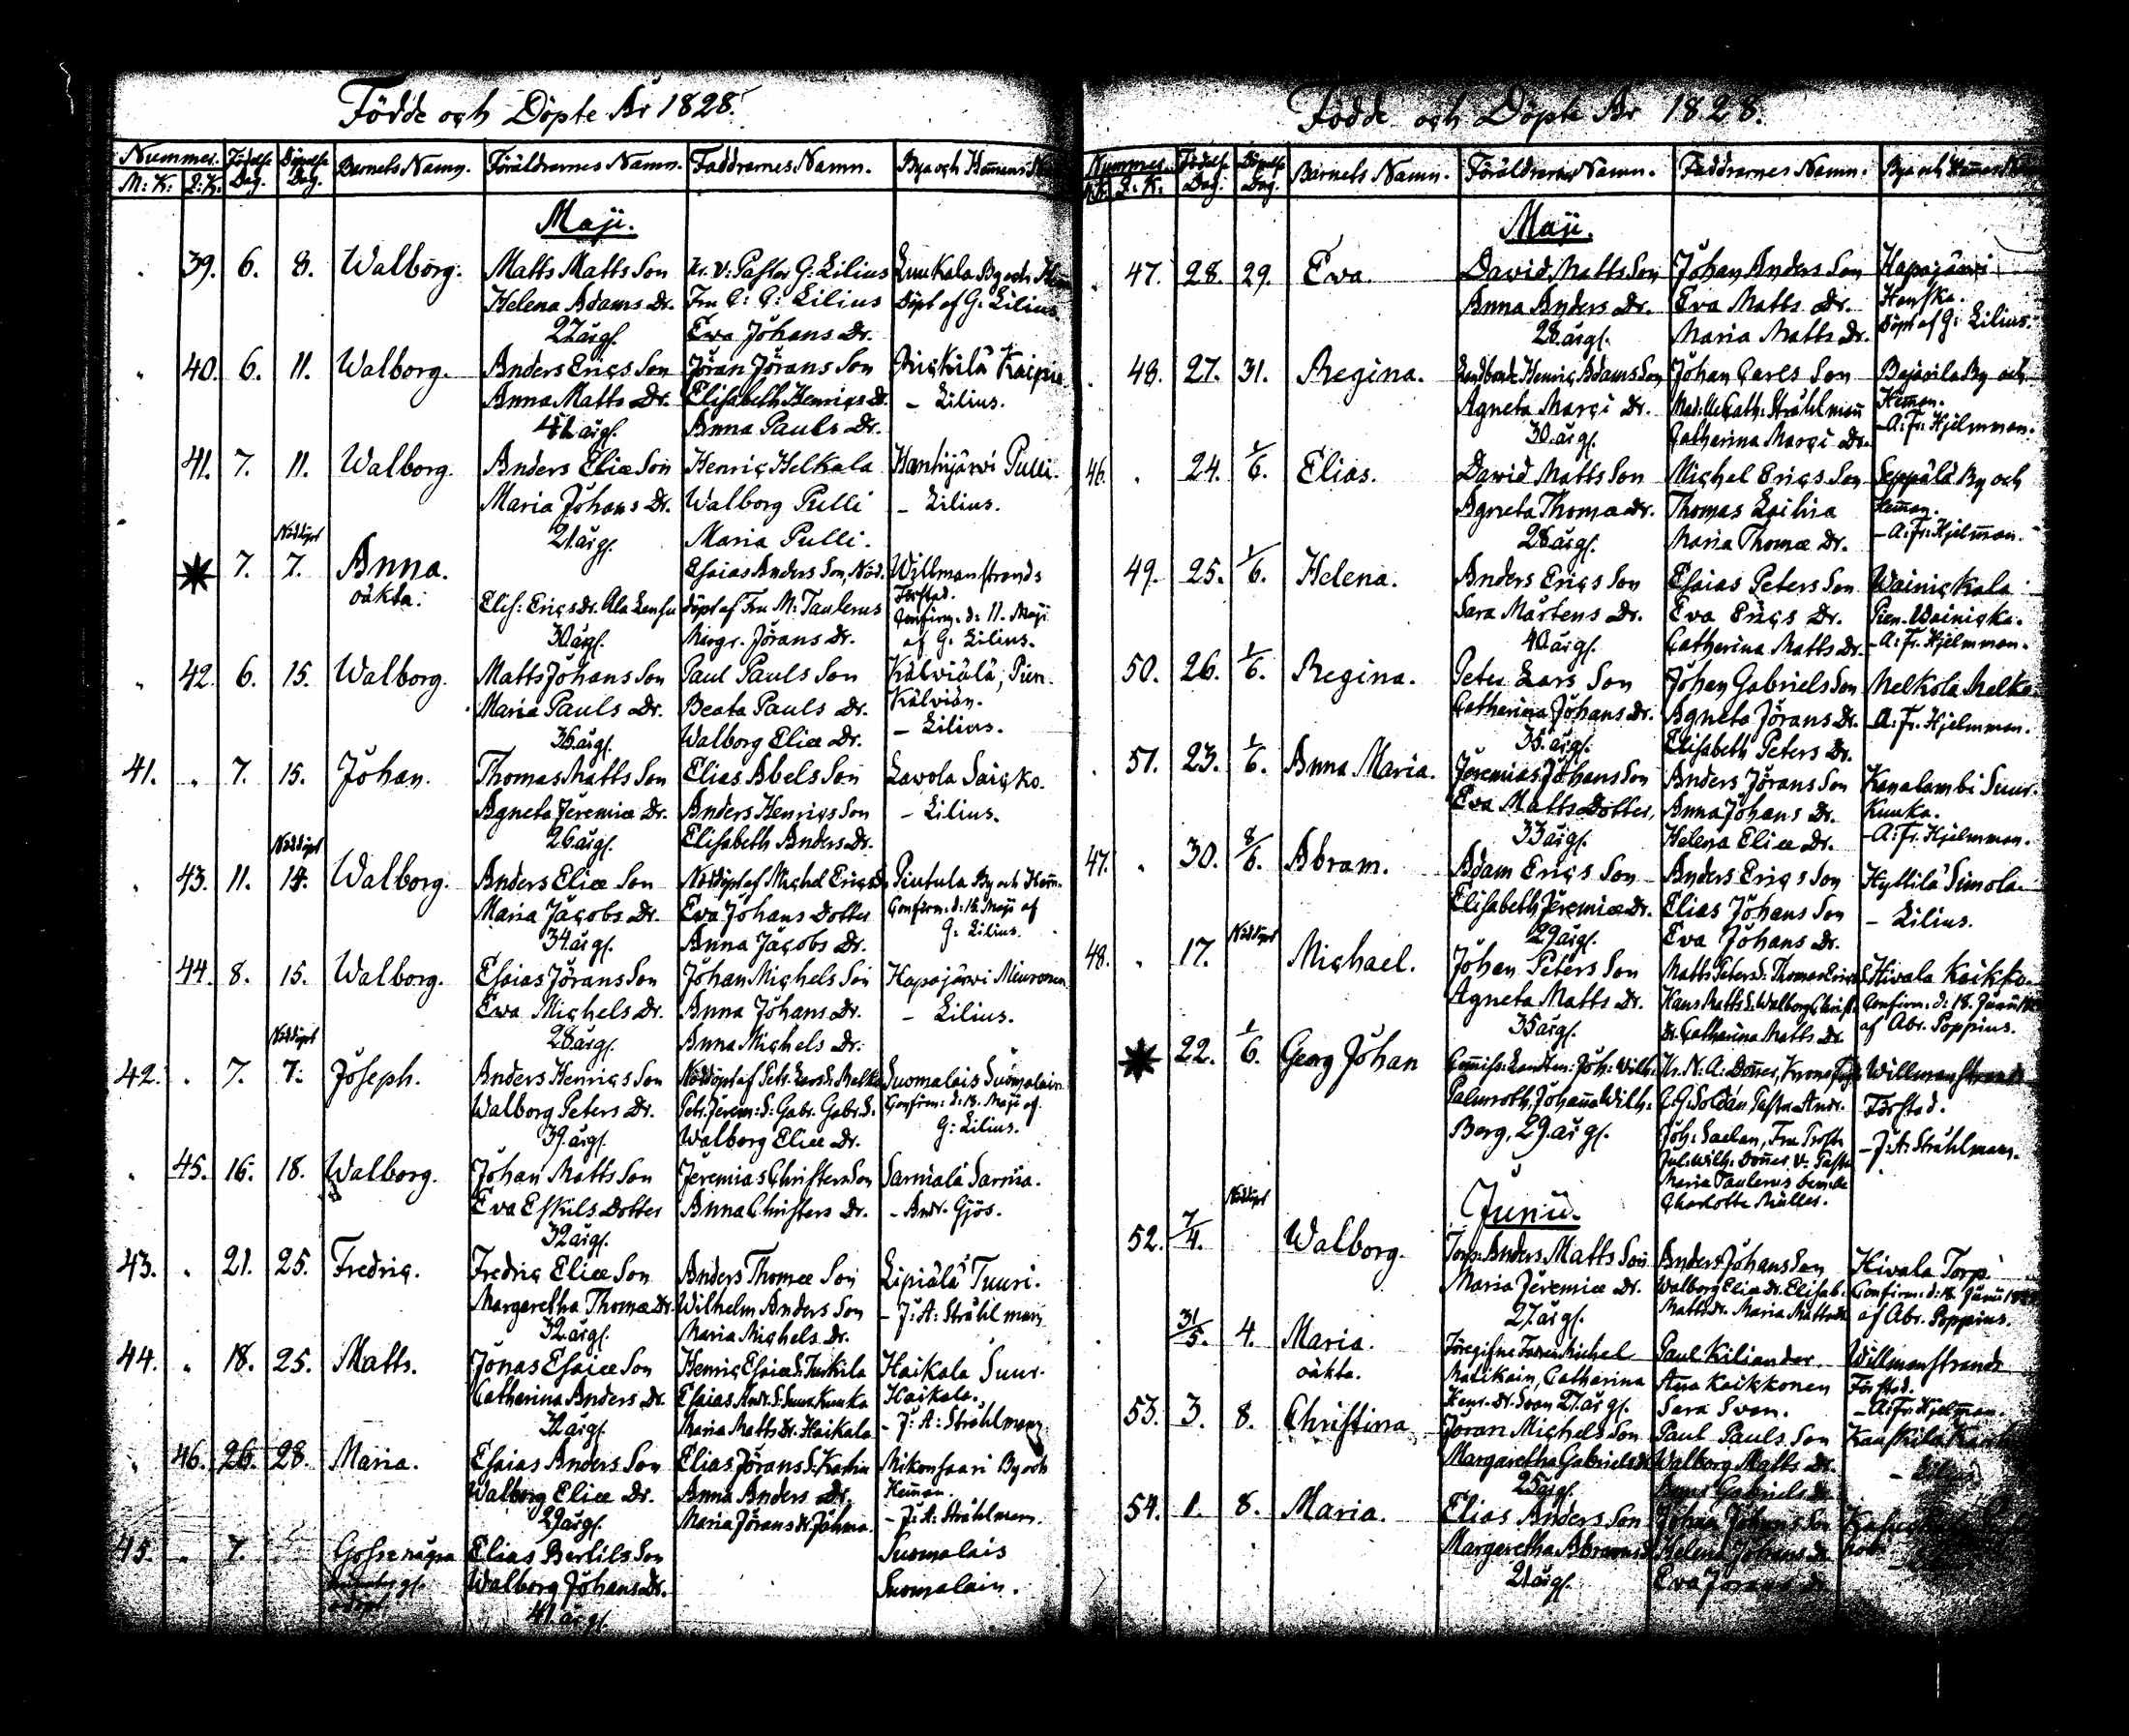 Födde och Döpte År 1828.
Nummer. Födelse Dag. Döpelse Dag. Barnets Namn. Föräldrarnes Namn. Faddrarnes Namn. Bya och Hem̄ans
M: K: Q: K:
Maji.
39. 6. 8. Walborg. Matts Matts Son Hr. v: Pastor G: Lilius Luukala By och
Helena Adams Dr. Fru C: G: Lilius Döpt af G: Lilius.
27 årg. Eva Johans Dr.
40. 6. 11. Walborg. Anders Erics Son Jöran Jörans Son Kaipia
Anna Matts Dr. Elisabeth Henrics Dr. – Lilius.
41 årg. Anna Pauls Dr.
41. 7. 11. Walborg. Anders Eliæ Son Henric Helkala Hanhijärvi Pulli.
Maria Johans Dr. Walborg Pulli – Lilius.
21 årg. Maria Pulli.
Nöddöpt
7. 7. Anna. Esaias Anders Son, Nöd. Willmanstrands
oäkta. Elis: Erics Dr. Ala Lensu döpt af Fru M: Taulerus Förstad.
Confirm. d: 11. Maji
30 årg. Margr. Jörans Dr. af G: Lilius.
42. 6. 15. Walborg. Matts Johans Son Paul Pauls Son Kälviälä, Pien.
Maria Pauls Dr. Beata Pauls Dr. Kälviän.
36 årg. Walborg Eliæ Dr. – Lilius.
41. 7. 15. Johan. Thomas Matts Son Elias Abels Son Lavola Saicko.
Agneta Jeremiæ Dr. Anders Henrics Son – Lilius.
26 årg. Elisabeth Anders Dr.
Nöddöpt
43. 11. 14. Walborg. Anders Eliæ Son Nöddöpt af Michel Erics Piutula By och Hem̄.
Maria Jacobs Dr. Eva Johans Dotter Confirm. d: 18. Maji af
34 årg. Anna Jacobs Dr. G: Lilius.
44. 8. 15. Walborg. Esaias Jörans Son Johan Michels Son Hapajärvi Miuronen
Eva Michels Dr. Anna Johans Dr. – Lilius.
28 årg. Anna Michels Dr.
Nöddöpt
42. 7. 7. Joseph. Anders Henrics Son Nöddöpt af Petr. Lars S. Melko Suomalais Suomalain
Walborg Peters Dr. Petr. Jerem: S: Gabr. Gabr. S. Confirm: d: 18. Maji af
39. årg. Walborg Eliæ Dr. G: Lilius.
45. 16. 18. Walborg. Johan Matts Son Jeremias Christers Son Sarviala Sarvia.
Eva Eskils Dotter Anna Christers Dr. – Andr. Gjös.
32 årg.
43. 21. 25. Fredric. Fredric Eliæ Son Anders Thomæ Son Lipiälä Tuuri.
Margaretha Thomæ Dr. Wilhelm Anders Son – J: A: Stråhlman
32 årg. Maria Michels Dr.
44. 18. 25. Matts. Jonas Esaiæ Son Henric Esaiæ S. Turkila Haikala Suur.
Catharina Anders Dr. Esaias Andr. S. Suur Kuuka Haikala.
32 årg. Maria Matts Dr. Haikala – J: A: Stråhlman
46. 26. 28. Maria. Esaias Anders Son Elias Jörans S. Mikonsaari By och
Walborg Eliæ Dr. Anna Anders Dr. Hem̄an.
29 årg. Maria Jörans Dr. – J: A: Stråhlman.
45. 7. Gosse Elias Bertils Son Suomalais
Walborg Johans Dr. Suomalain.
41 årg.
Födde och Döpte År 1828.
Nummer. Födelse Dag. Döpelse Dag. Barnets Namn. Föräldrarnes Namn. Faddrarnes Namn. Bya och
M: K: Q: K:
Maji.
47. 28. 29. Eva. David Matts Son Johan Anders Son Hapajärvi
Anna Anders Dr. Eva Matts Dr. Hanska.
28 årg. Maria Matts Dr. Döpt af G: Lilius.
48. 27. 31. Regina. Landbond. Henric Adams Son Johan Carls Son Bajarila By och
Agneta Marci Dr. Mad:lle Cath: Stråhlman Hem̄an.
30 årg. Catharina Marci Dr. – A: Fr: Hjelmman.
46. 24. 1/6. Elias. David Matts Son Michel Erics Son Seppälä By och
Agneta Thomæ Dr. Thomas Laihia Hem̄an.
28 årg. Maria Thomæ Dr. – A: Fr: Hjelmman.
49. 25. 1/6. Helena. Anders Erics Son Esaias Peters Son Wainickala
Sara Mårtens Dr. Eva Erics Dr. Pien Wainicka.
40 årg. Catharina Matts Dr. – A: Fr. Hjelmman.
50. 26. 1/6. Regina. Peter Lars Son Johan Gabriels Son Melkola Melko.
Catharina Johans Dr. Agneta Jörans Dr. – A: Fr. Hjelmman.
35 årg. Elisabeth Peters Dr.
51. 23. 1/6. Anna Maria. Jeremias Johans Son Anders Jörans Son Kanalambi Suur.
Eva Matts Dotter, Anna Johans Dr. Kuuka.
33 årg. Helena Eliæ Dr. – A: Fr. Hjelmman.
47. 30. 8/6. Abram. Adam Erics Son Anders Erics Son Hyttilä Simola.
Elisabeth Jeremiæ Dr. Elias Johans Son – Lilius.
29 årg. Eva Johans Dr.
Nöddöpt
48. 17. Michael. Johan Peters Son Matts Peters S. Thomas Erics Hivala Kaikko.
Agneta Matts Dr. Hans Matts S. Walborg Christ. Confirm. d: 18. Junii
35 årg. Dr. Catharina Matts Dr. af Abr. Poppius.
22. 1/6. Georg Johan Joh: Wilh: Hr. N. A. Donner, Krono Willmanstrands
Palmroth, Johanna Wilh: C. G. Soldan Förstad.
Berg, 29 årg. Joh: Saelan, Fru – J: A: Stråhlman.
Jul. Wilh. Donner,
Maria Taulerus
Charlotta Müller.
Junii.
Nöddöpt
52. 7/4. Walborg. Torp: Anders Matts Son Anders Johans Son Hivala Torp.
Maria Jeremiæ Dr. Walborg Eliæ Dr. Elisab: Confirm: d: 18. Junii
27 årg. Matts Dr. Maria Matts Dr. af Abr. Poppius.
31/5. 4. Maria. Föregifne Fadren Michel Paul Kiliander Willmanstrands
oäkta. Matikain, Catharina Anna Kaikkonen Förstad.
Henr. Dr. Svan 27 årg. Sara Svan. – A: Fr. Hjelmman.
53. 3. 8. Christina Jöran Michels Son Paul Pauls Son Kauskila
Margaretha Gabriels Dr. Walborg Matts Dr. – Lilius
25 årg. Anna Gabriels Dr.
54. 1. 8. Maria. Elias Anders Son Johan Johans Son
Margaretha Abrams Dr. Helena Johans Dr.
21 årg. Eva Jörans Dr.